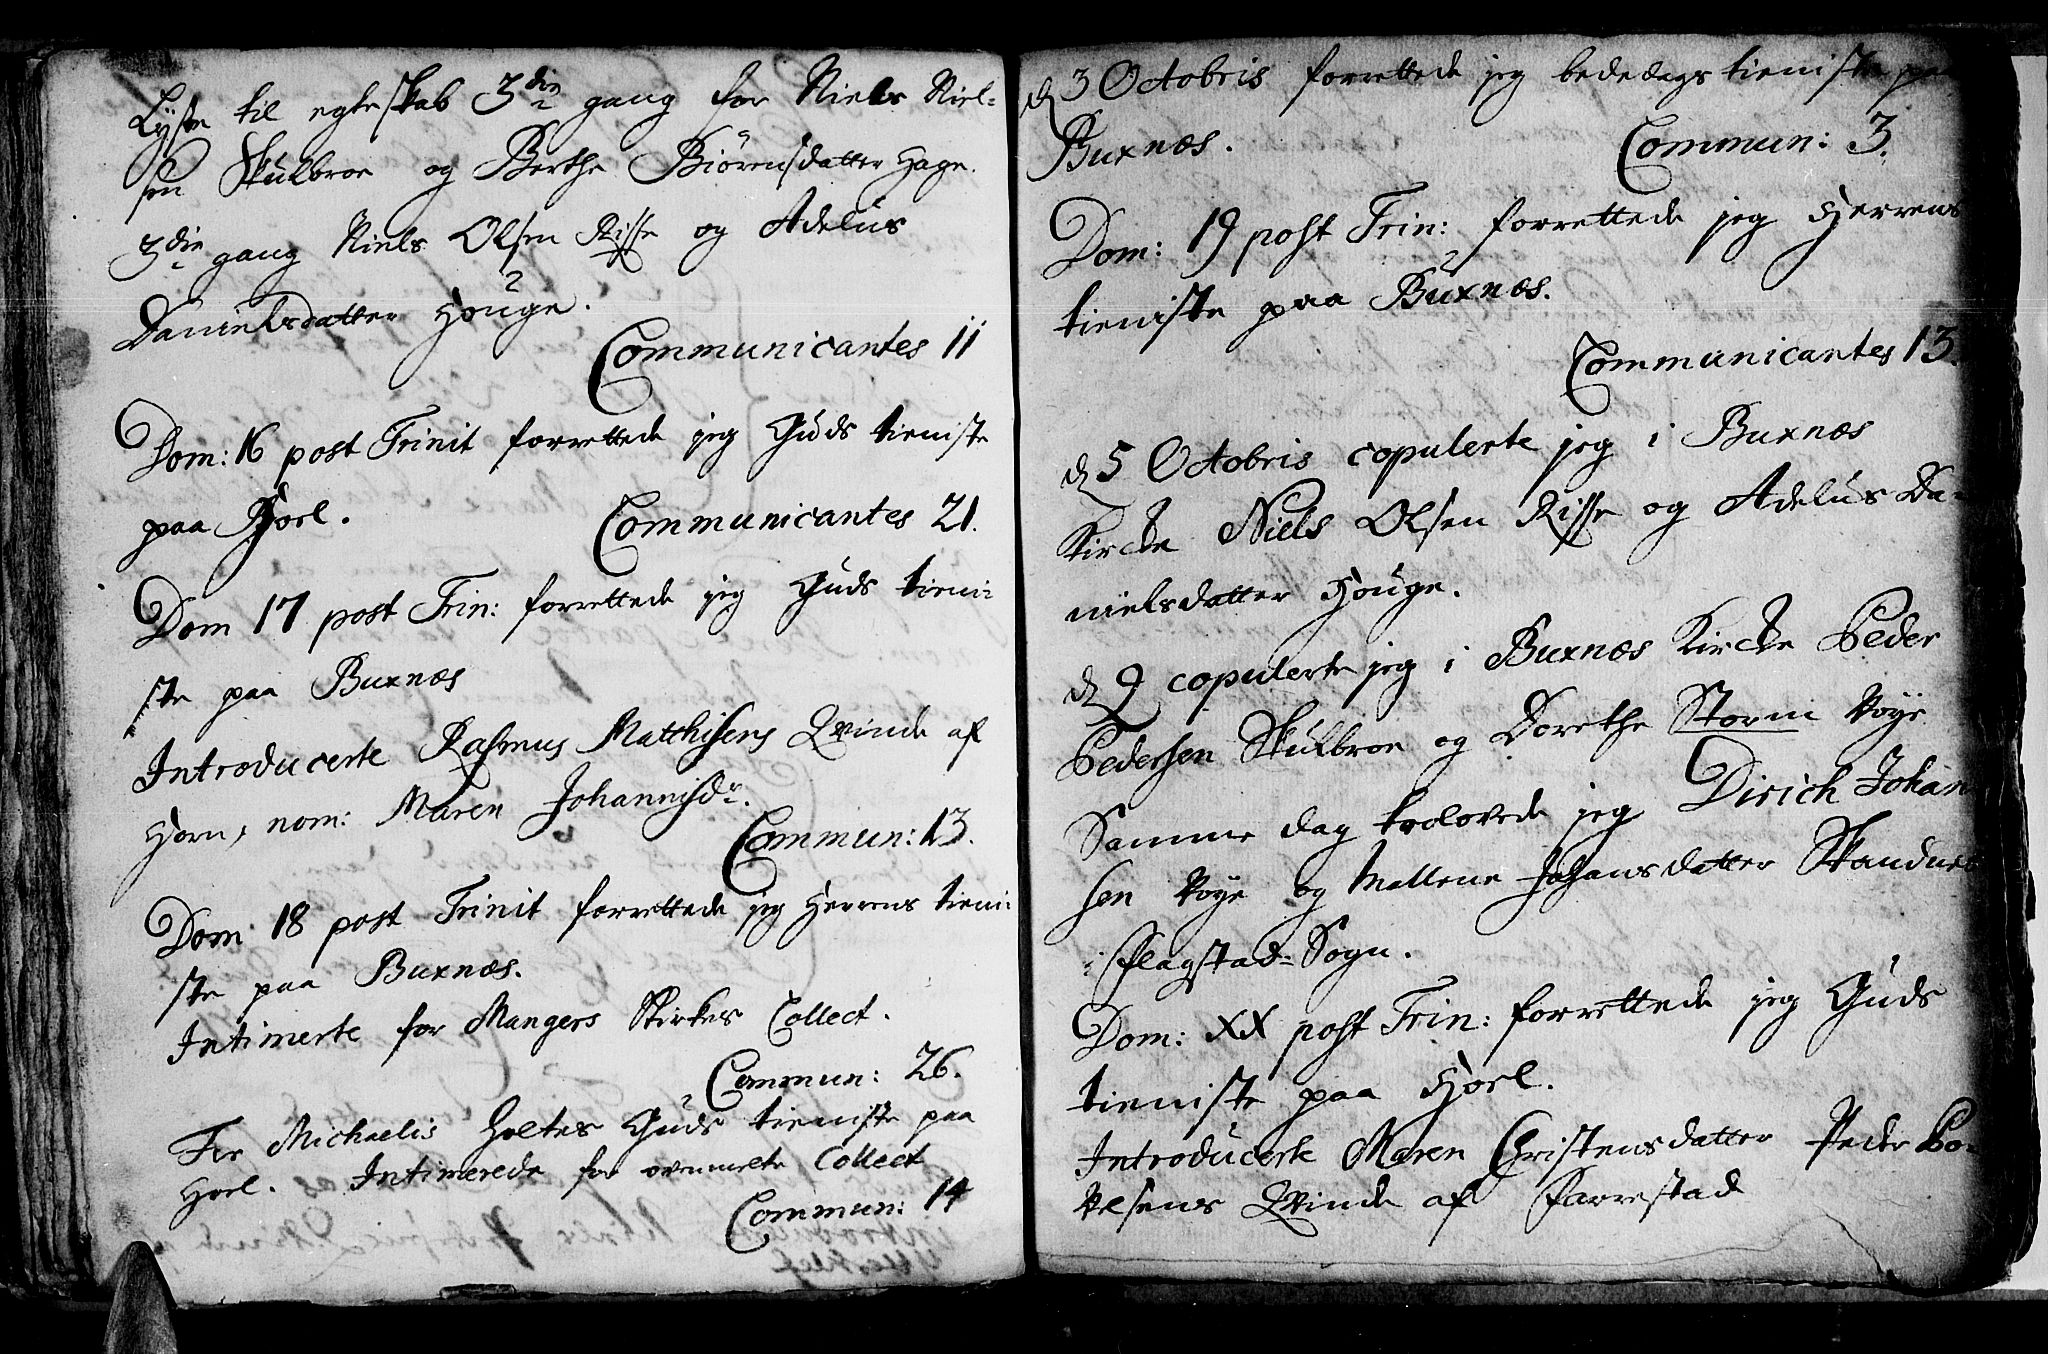 Lyste til egteskab 3die gang for Niels Niel-
sen Skulbroe og Berthe Biörensdatter Hage.
3die gang Niels Olsen Risse og Adelüs
Danielsdatter Houge.
Communicantes 11
Dom: 16 post Trinit forrettede jeg Guds tieniste
paa Hoel.
Communicantes 21.
Dom 17 post Trin: forrettede jeg Guds tieni-
ste paa Buxnæs
Introducerte Rasmus Matthisens Qvinde af
Horn, nom: Maren Johannisdr.
Commun: 13.
Dom 18 post Trinit forrettede jeg Herrens tieni-
ste paa Buxnæs.
Intimerte for Mangers Kirkes Collect.
Commun: 26.
Fer Michaelis holtes Guds tieniste paa
Hoel. Intimerede for ovenmelte Collect
Commun: 14
d 3 Octobris forrettede jeg bededags tieniste paa
Buxnæs.
Commun: 3.
Dom: 19 post Trin: forrettede jeg Herrens
tieniste paa Büxnæs.
Communicantes 13.
d 5 Octobris copulerte jeg i Buxnæs
Kircke Niels Olsen Risse og Adelüs Da-
nielsdatter Houge.
d 9 copulerte jeg i Buxnæs Kircke Peder
Pedersen Skulbroe og Dorethe Storm Vöye
Samme dag trolovede jeg Dirich Johan
sen Vöye og Mallene Johansdatter Skandnes
i Flagstad-Sogn.
Dom: XX post Trin: forrettede jeg Guds
tieniste paa Hoel.
Introducerte Maren Christensdatter Peder Po-
velsens Qvinde af Farrestad